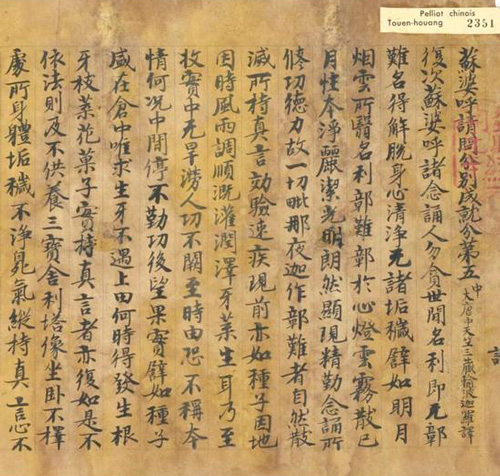 Pelliot chinois
Touen-houang 2351
蘇婆呼請問分別成就分第五 中
大唐中天生三藏輸波迦羅譯
復次蘇婆呼諸念誦人勿貪世間名利即无鄣
難名得解脫身心清淨无諸垢穢譬如明月
烟雲所翳名利鄣難鄣於心燈雲霧散已
月性本淨麗潔光明朗然顯現精勤念誦所
修功德力故一切毗那夜迦作鄣難者自然散
滅所持真言効驗速疾現前亦如種子因地
因時風雨調順溉灌潤澤牙葉生耳乃至
收實中无旱澇人切不闕至時由恐不稱本
情何況中間停不勤功後望果實譬如種子
盛在倉中唯求生牙不遇上由何時得發生根
牙枝葉花菓子實持真言者亦復如是不
依法則及不供養三寶舍利塔像坐卧不擇
處所身體垢穢不淨臰氣縱持真言心不